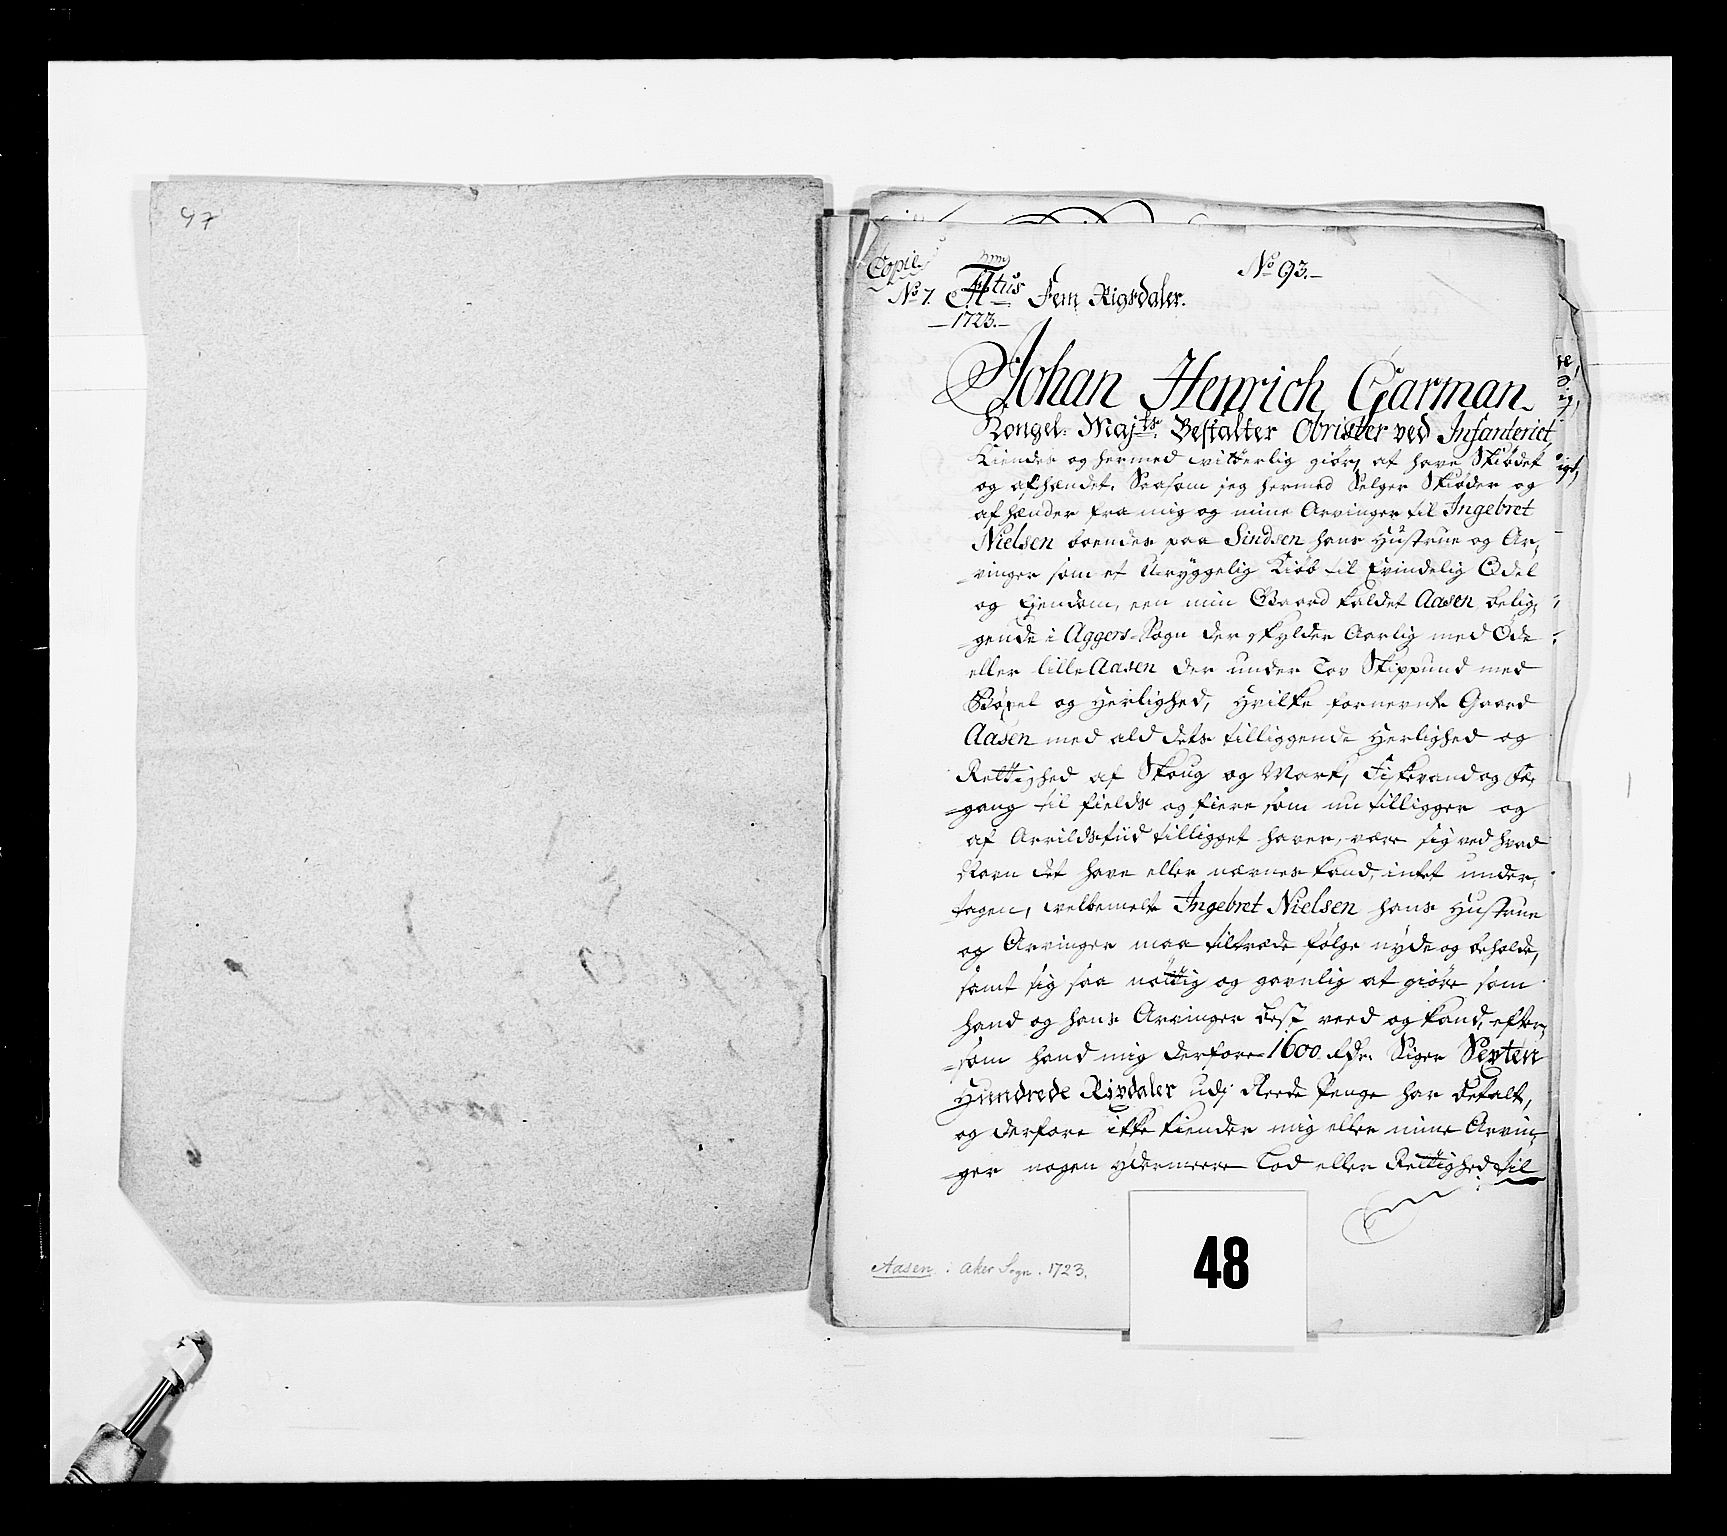 47
Copie
No 7.
No 93.
Fem Rigsdaler.
1723.
Johan Henrich Garman
Kongel: Majts. Bestalter Obrister ved Infanteriet,
Kiendes og hermed vitterlig giör, at have Skiödet
og afhændet, Saasom jeg hermed Selger Skiöder og
afhænder fra mig og mine Arvinger til Ingebret
Nielsen boendes paa Sindsen hans Hustrue og Ar-
vinger som et Uryggelig Kiöb til Evindelig Odel
og Ejendom, een min Gaard kaldet Aasen belig-
gende i Aggers Sogn der skylder Aarlig med Öde
eller lille Aasen der under Tov Skippund med
Böxel og Herlighed, Hvilke fornevnte Gaard
Aasen med ald dets tilliggende Herlighed og
Rettighed af Skoug og Mark, Fiskevand og Fæ-
gang til fields og fiere som nu tilligger og
af Arrilds tiid tilligget haver, være sig ved hvad
Navn det have eller nævnes kand, intet under-
tagen, velbemelte Ingebret Nielsen hans Hustrue
og Arvinger maa tiltræde fölge nyde og beholde,
samt sig saa nöttig og gavnlig at giöre som
hand og hans Arvinger best veed og kand, efter-
som hand mig derfore 1600 Rdr. Siger Sexten
Hundrede Rixdaler udj Reede Penge har betalt,
og derfore ikke kiender mig eller mine Arvin-
ger nogen ydermeere Lod eller Rettighed til
Aasen i Aker Sogn. 1723.
48